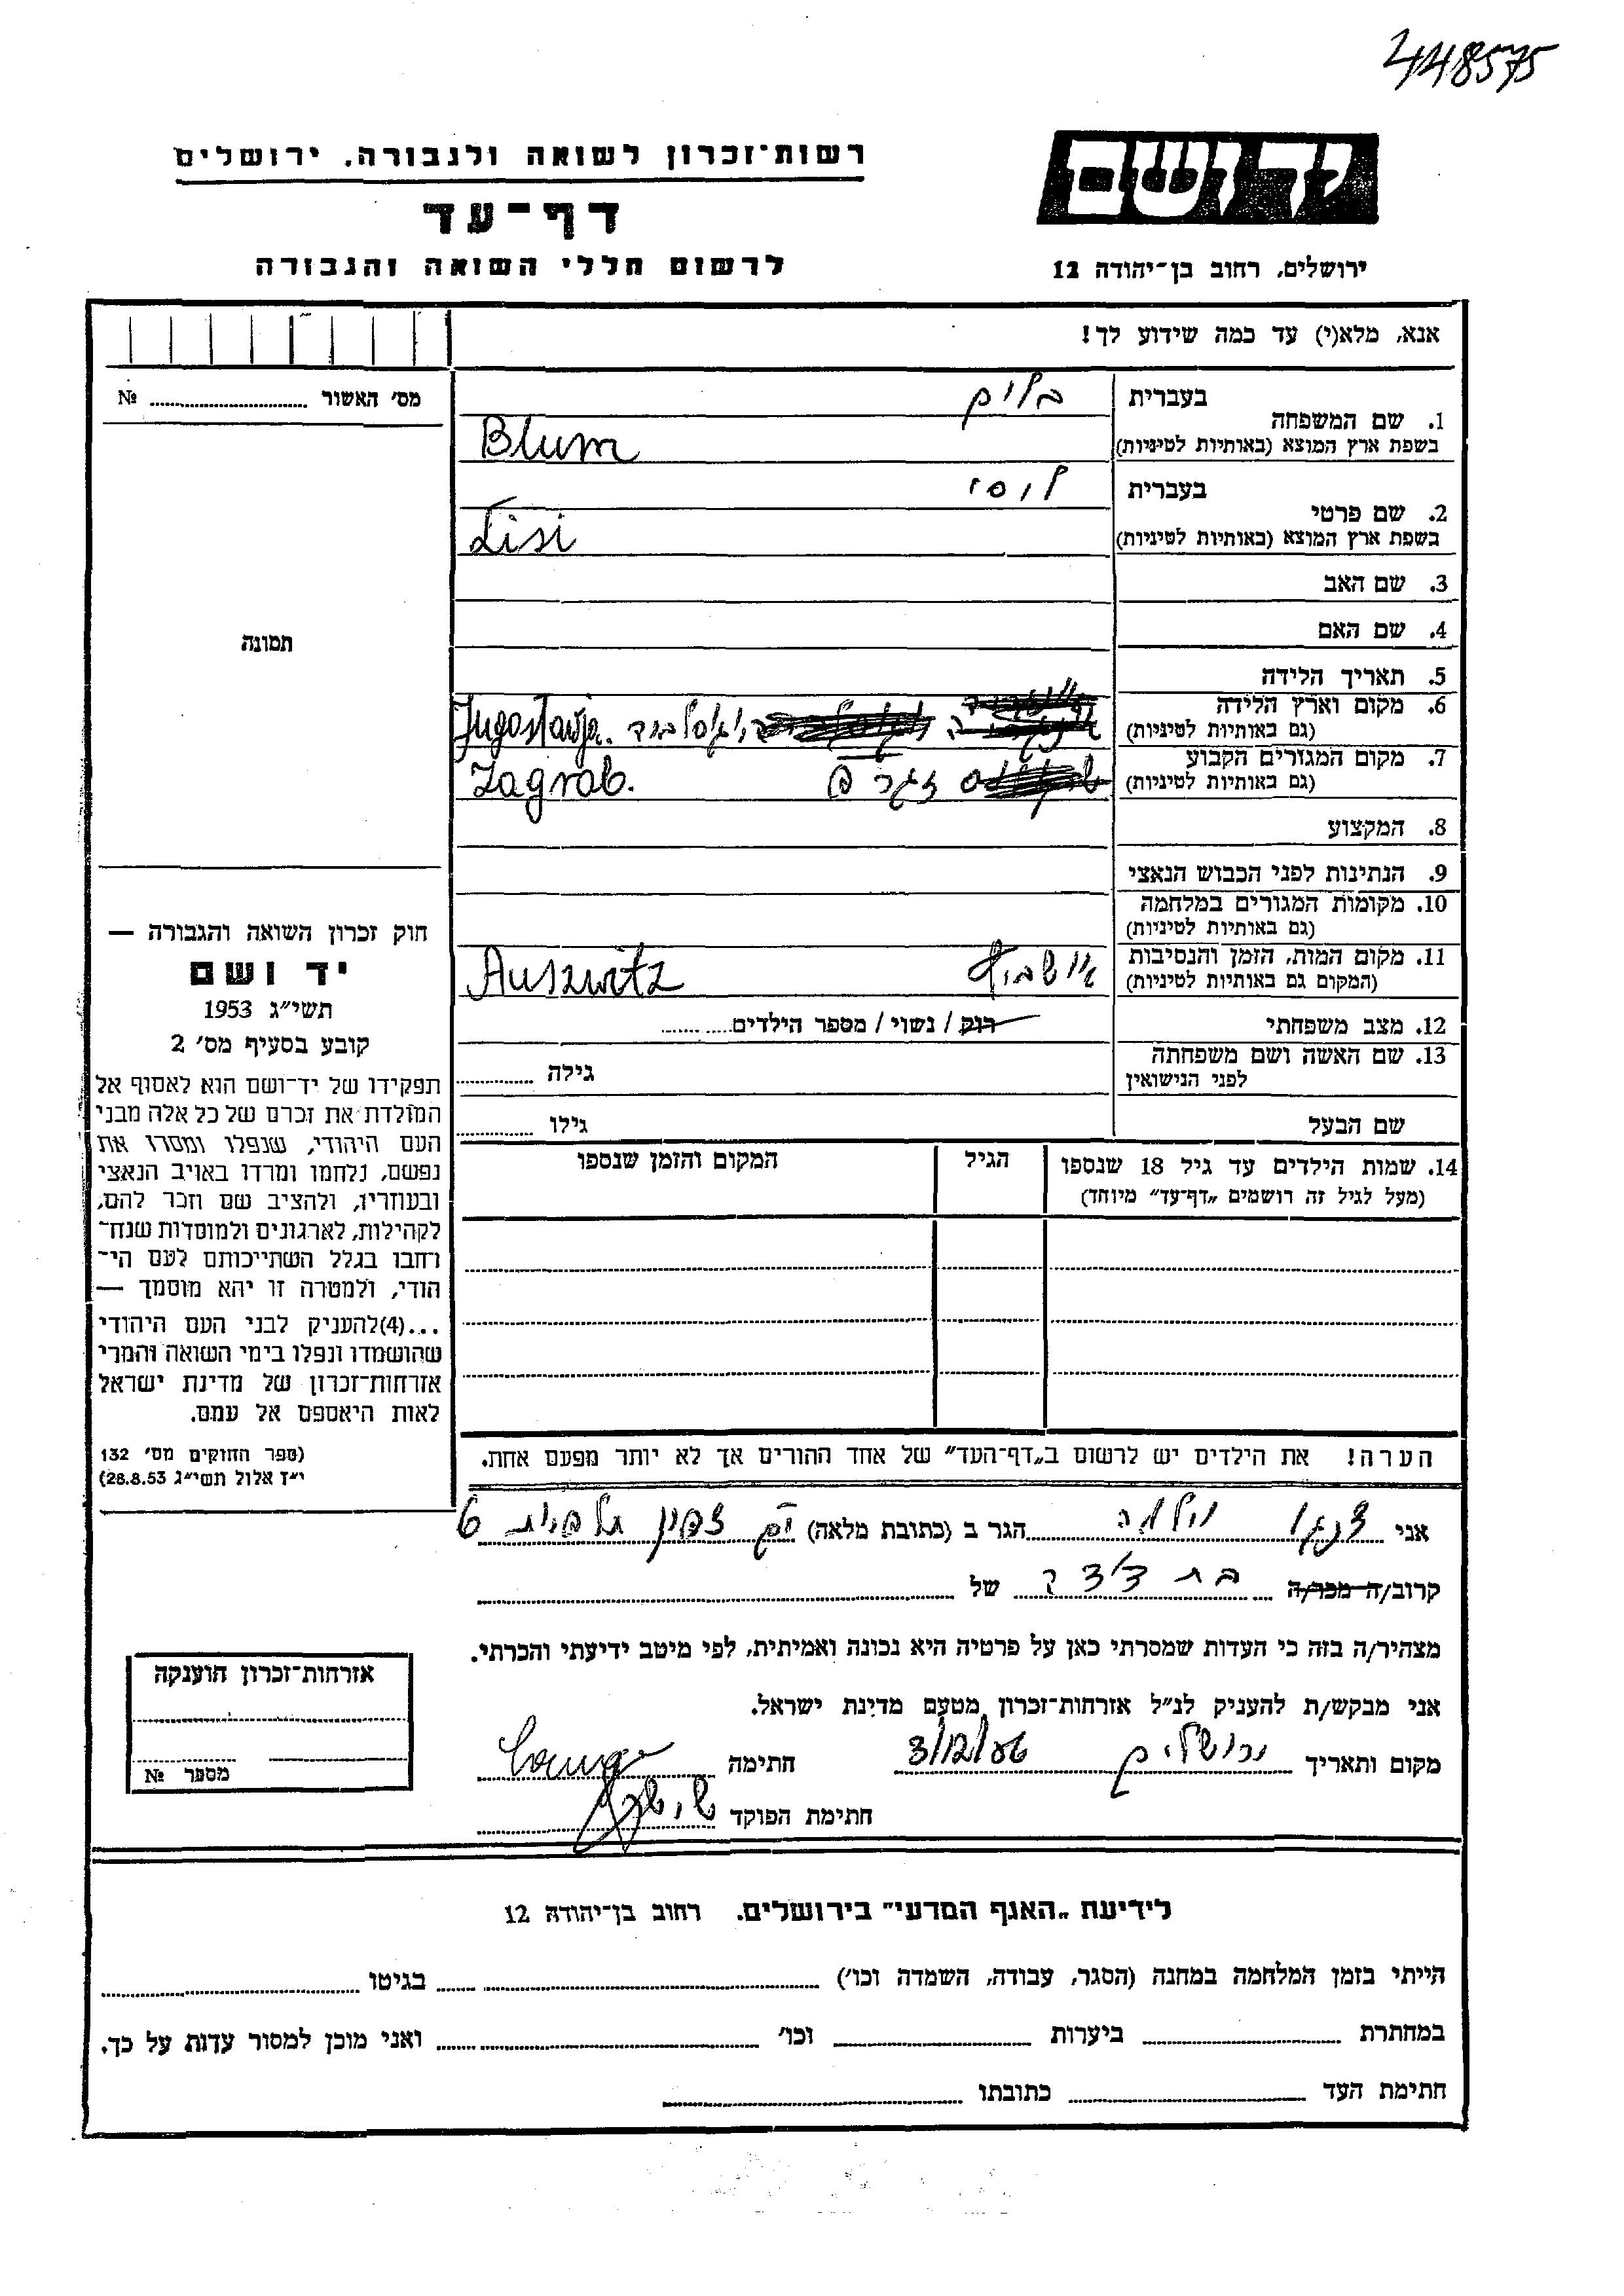 448575
ידושם
רשות־זכרון לשואה ולגבורה, ירושלים
דף־עד
לרשום חללי השואה והגבורה
ירושלים, רחוב בן־יהודה 12
אנא, מלא(י) עד כמה שידוע לך!
מס׳ האשור № 
1. שם המשפחה
בעברית
בלום
בשפת ארץ המוצא (באותיות לטיניות)
Blum
2. שם פרטי
בעברית
ליסי
בשפת ארץ המוצא (באותיות לטיניות)
Lisi
3. שם האב
4. שם האם
תמונה
5. תאריך הלידה
6. מקום וארץ הלידה
(גם באותיות לטיניות)
יוגוסלביה Jugoslavija.
7. מקום המגורים הקבוע
(גם באותיות לטיניות)
זגרב Zagrab.
8. המקצוע
9. הנתינות לפני הכבוש הנאצי
10. מקומות המגורים במלחמה
(גם באותיות לטיניות)
11. מקום המות, הזמן והנסיבות
(המקום גם באותיות לטיניות)
אושביץ Auszwitz
12. מצב משפחתי
רוק / נשוי / מספר הילדים
13. שם האשה ושם משפחתה
לפני הנישואין
גילה
שם הבעל
גילו
14. שמות הילדים עד גיל 18 שנספו
(מעל לגיל זה רושמים „דף־עד״ מיוחד)
הגיל
המקום והזמן שנספו
חוק זכרון השואה והגבורה —
יד ושם
תשי״ג 1953
קובע בסעיף מס׳ 2
תפקידו של יד־ושם הוא לאסוף אל
המולדת את זכרם של כל אלה מבני
העם היהודי, שנפלו ומסרו את
נפשם, נלחמו ומרדו באויב הנאצי
ובעוזריו, ולהציב שם וזכר להם,
לקהילות, לארגונים ולמוסדות שנח־
רחבו בגלל השתייכותם לעם הי־
הודי, ולמטרה זו יהא מוסמך —
...(4)להעניק לבני העם היהודי
שהושמדו ונפלו בימי השואה והמרי
אזרחות־זכרון של מדינת ישראל
לאות היאספם אל עמם.
(ספר החוקים מס׳ 132
י״ז אלול תשי״ג 28.8.53)
הערה! את הילדים יש לרשום ב„דף־העד״ של אחד ההורים אך לא יותר מפעם אחת.
אני וילמה הגר ב (כתובת מלאה) תלפיות 6
קרוב/ה מכר/ה בת דודה של
מצהיר/ה בזה כי העדות שמסרתי כאן על פרטיה היא נכונה ואמיתית, לפי מיטב ידיעתי והכרתי.
אני מבקש/ת להעניק לנ״ל אזרחות־זכרון מטעם מדינת ישראל.
מקום ותאריך ירושלים 3/12/ חתימה
חתימת הפוקד
אזרחות־זכרון הוענקה
מספר №
לידיעת „האגף המדעי״ בירושלים. רחוב בן־יהודה 12
הייתי בזמן המלחמה במחנה (הסגר, עבודה, השמדה וכו׳) בגיטו
במחתרת ביערות וכו׳ ואני מוכן למסור עדות על כך.
חתימת העד כתובתו